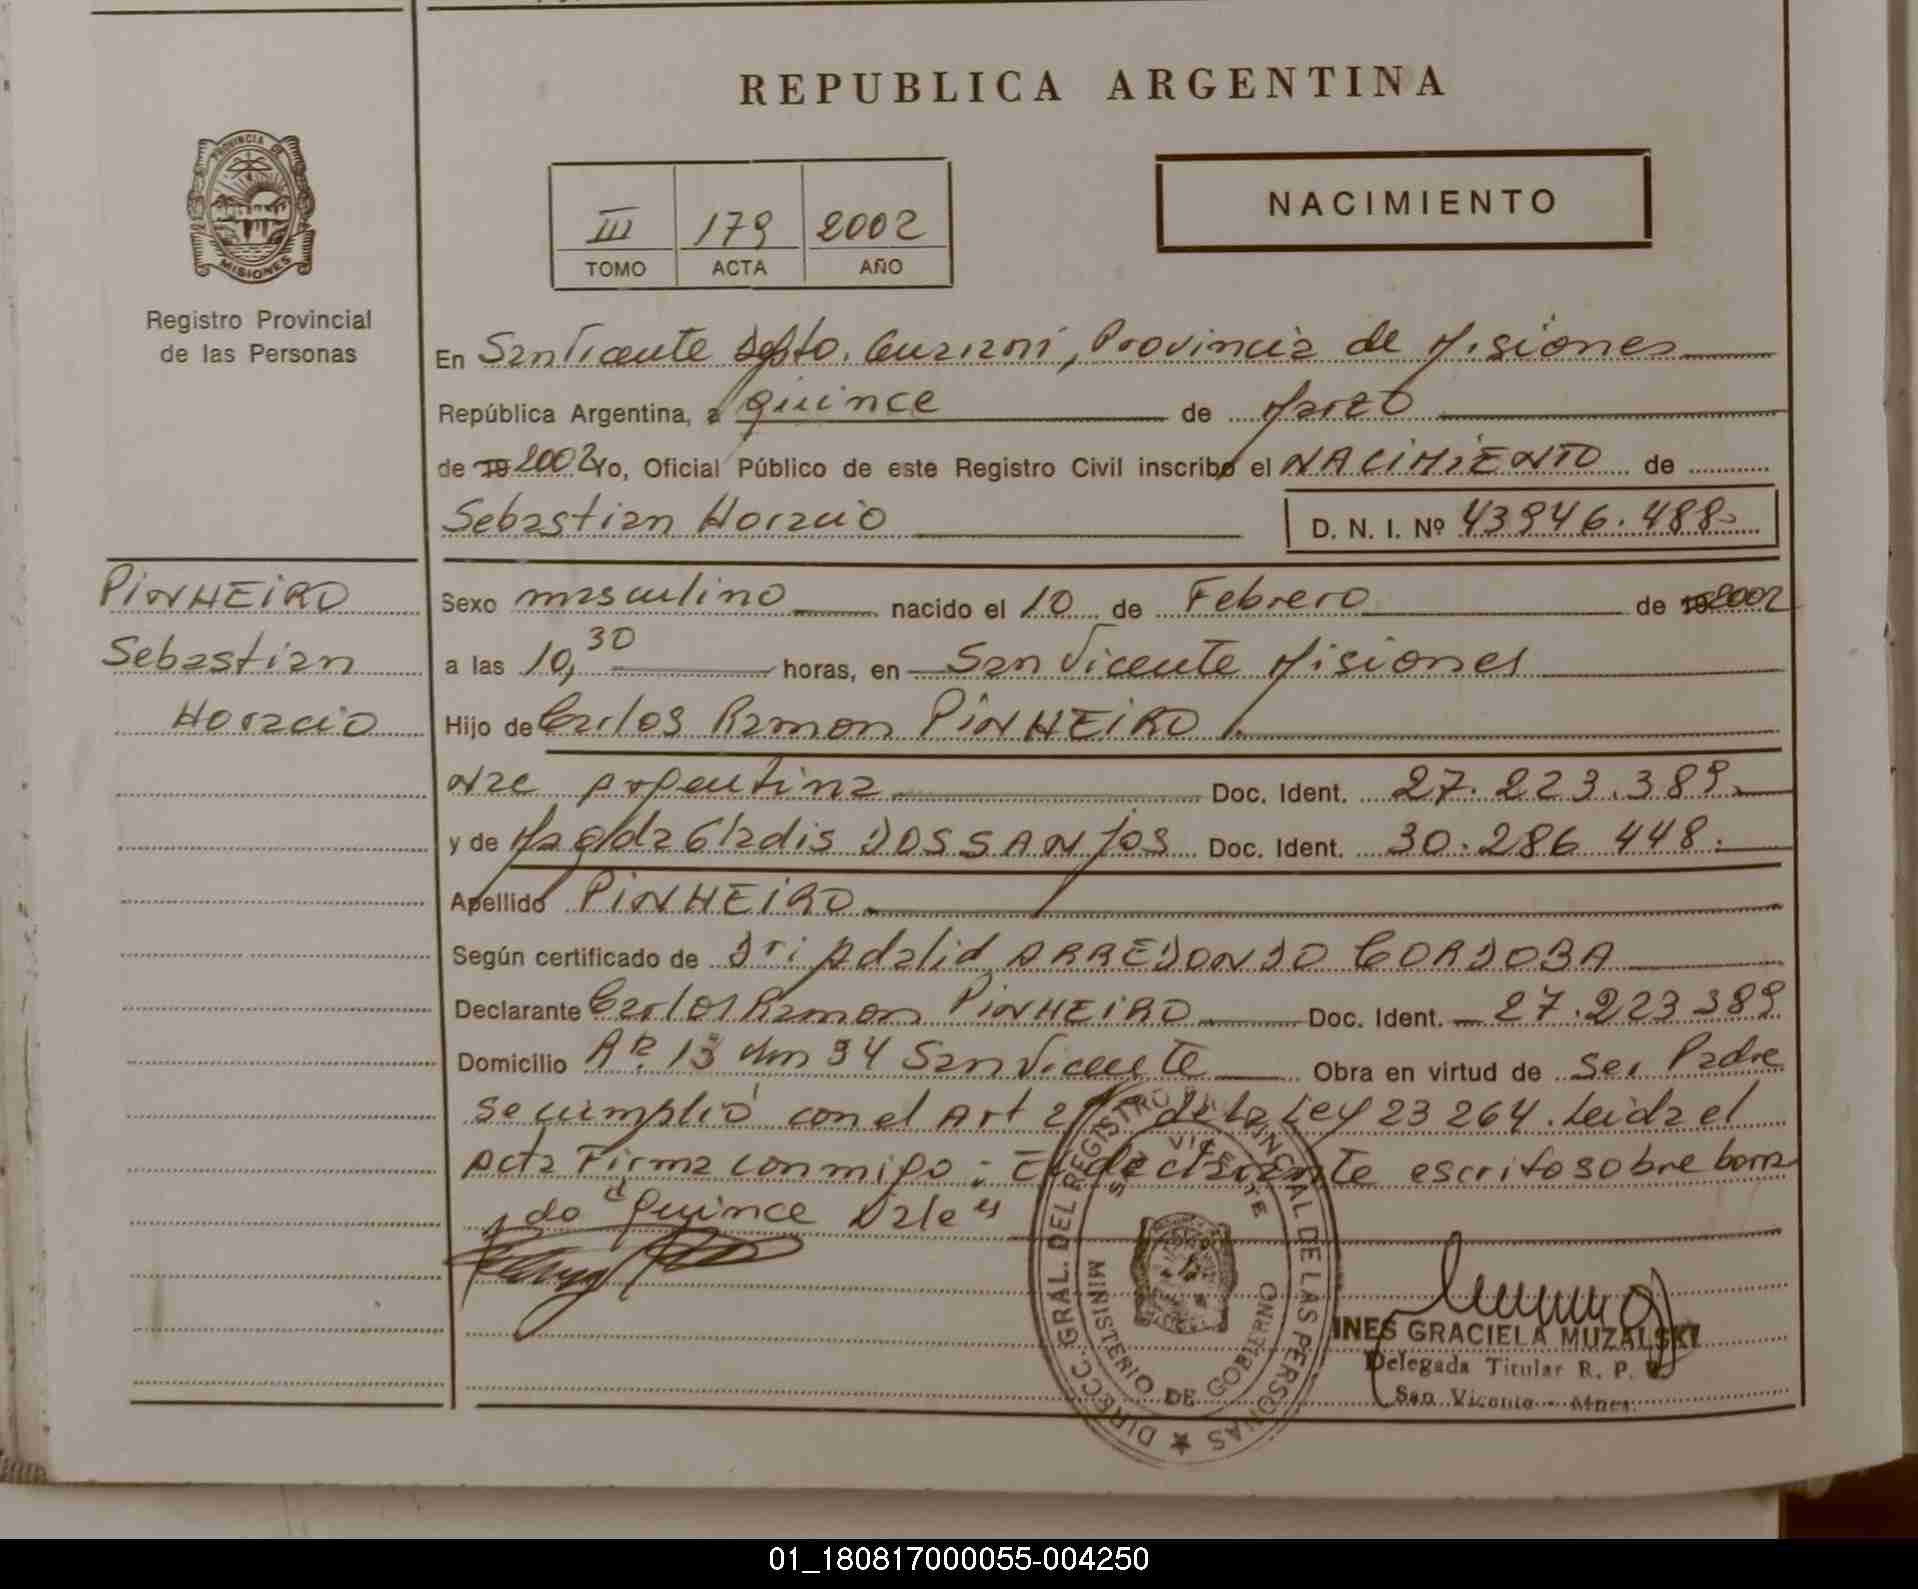 REPUBLICA ARGENTINA
PROVINCIA DE
MISIONES
Registro Provincial
de las Personas
III 179 2002
TOMO ACTA AÑO
NACIMIENTO
En San Vicente Dpto. Guarani, Provincia de Misiones
República Argentina, a quince de Marzo
de 19 2002 Yo, Oficial Público de este Registro Civil inscribo el NACIMIENTO de
Sebastian Horacio D. N. I. Nº 43946.488
PINHEIRO
Sebastian
Horacio
Sexo masculino nacido el 10 de Febrero de 19 2002
a las 10,30 horas, en San Vicente Misiones
Hijo de Carlos Ramon PINHEIRO
Nac Argentina Doc. Ident. 27.223.389.
y de Magda Gladis DOS SANJOS Doc. Ident. 30.286 448.
Apellido PINHEIRO
Según certificado de Dr: Adalid ARREDONDO CORDOBA
Declarante Carlos Ramon PINHEIRO Doc. Ident. 27.223 389
Domicilio 13 Km 94 San Vicente Obra en virtud de ser Padre
se cumplió con el Art de la Ley 23 264. Leida el
Acta Firma conmigo: El declarante escrito sobre borra
do "Quince Vale"
DIRECC. GRAL. DEL REGISTRO PROVINCIAL DE LAS PERSONAS
SAN VICENTE
MINISTERIO DE GOBIERNO
INES GRACIELA MUZALSKI
Delegada Titular R. P. P.
San Vicente - Mnes.
01_180817000055-004250